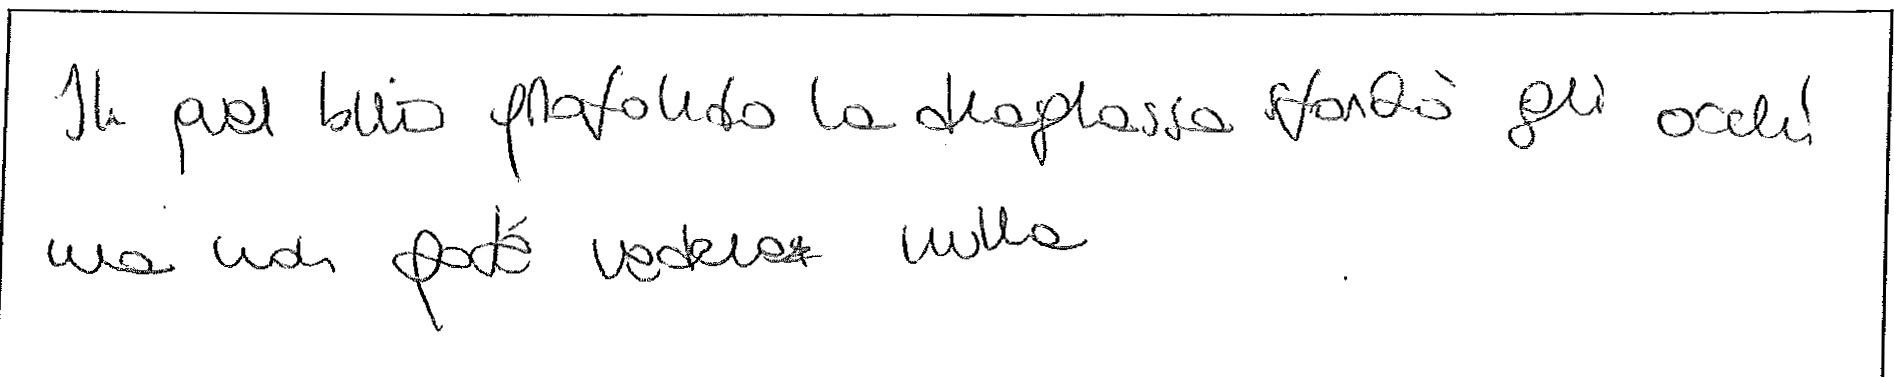 In quel buio profondo la draghessa sfondò gli occhi
ma non poté vedere nulla